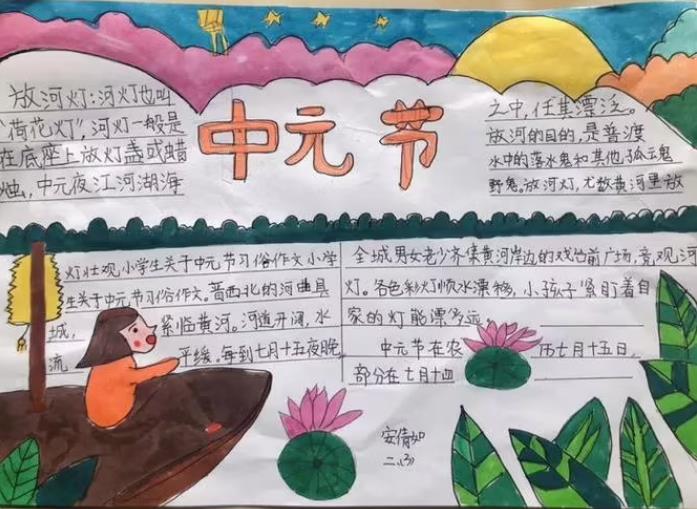 放河灯:河灯也叫
"荷花灯",河灯一般是
在底座上放灯盏或蜡
烛,中元夜江河湖海
中元节
之中,任其漂泛。
放河的目的,是普渡
水中的落水鬼和其他孤云鬼
野鬼。放河灯,尤数黄河里放
灯壮观小学生关于中元节习俗作文小学
生关于中元节习俗作文。晋西北的河曲县
城,紧临黄河。河道开阔,水
流平缓。每到七月十五夜晚,
全城男女老少齐集黄河岸边的戏台前广场,竞观河
灯。各色彩灯顺水漂移,小孩子紧盯着自
家的灯能漂多远。
中元节在农历七月十五日,
部分在七月十四
安倩如
二、(3)